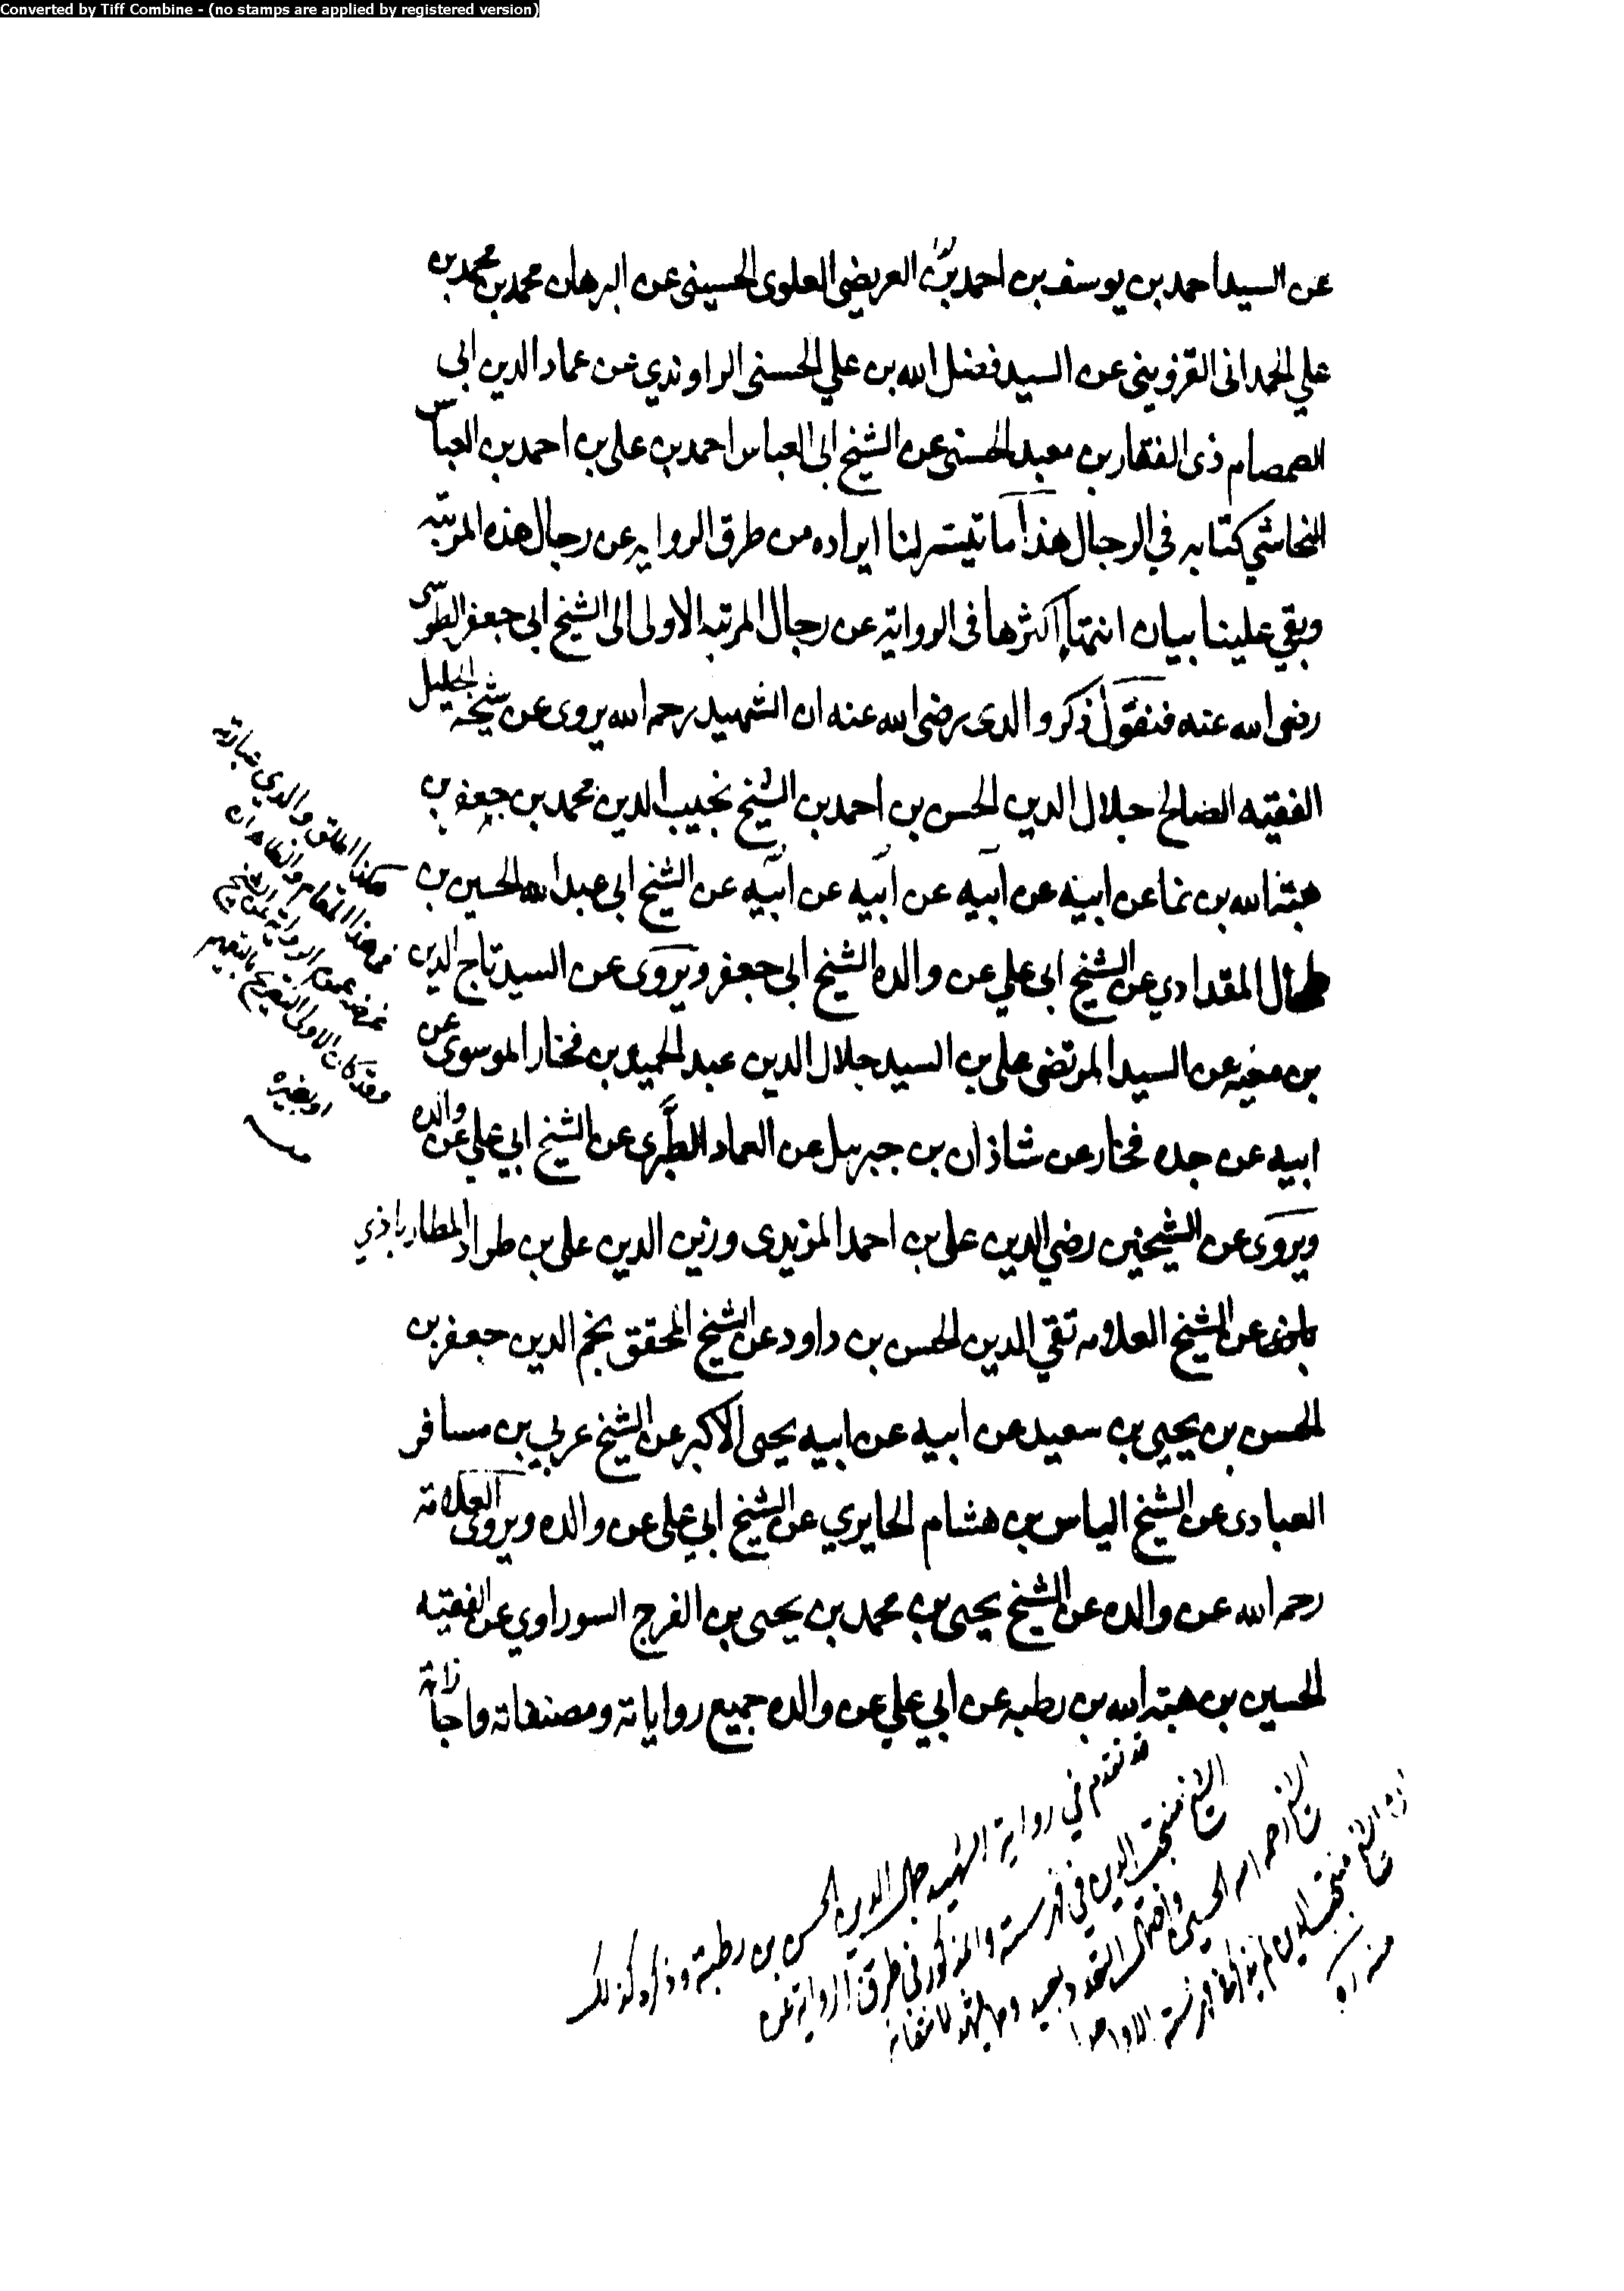 Converted by Tiff Combine - (no stamps are applied by registered version)
عن السيد احمد بن يوسف بن احمد بن العريضى العلوى الحسينى عن البرهان محمد بن محمد بن
علي الحمدانى القزوينى عن السيد فضل الله بن علي الحسنى الراوندي عن عماد الدين ابى
الصمصام ذى الفقار بن معبد الحسنى عن الشيخ ابى العباس احمد بن على بن احمد بن العباس
النجاشي كتابه في الرجال هذا ما تيسر لنا ايراده من طرق الروايه عن رجال هذه المرتبه
وبقي علينا بيان انتهاء اكثرها فى الرواية عن رجال المرتبه الاولى الى الشيخ ابى جعفر الطوسى
رضى الله عنه فنقول ذكر والدى رضى الله عنه ان الشهيد رحمه الله يروى عن شيخه الجليل
الفقيه الصالح جلال الدين الحسن بن احمد بن الشيخ نجيب الدين محمد بن جعفر بن
هبة الله بن نما عن ابيه عن ابيه عن ابيه عن ابيه عن الشيخ ابى عبد الله الحسين بن
طحال المقدادي عن الشيخ ابى علي عن والده الشيخ ابى جعفر ويروى عن السيد تاج الدين
بن معيه عن السيد المرتضى على بن السيد جلال الدين عبد الحميد بن فخار الموسوى عن
ابيه عن جده فخار عن شاذان بن جبرئيل عن العماد الطبرى عن الشيخ ابي علي عن والده
ويروى عن الشيخين رضي الدين على بن احمد المزيدى وزين الدين على بن طراد المطارباذي
عن الشيخ العلامه تقي الدين الحسن بن داود عن الشيخ المحقق نجم الدين جعفر بن
الحسن بن يحيى بن سعيد عن ابيه عن ابيه يحيى الاكبر عن الشيخ عربي بن مسافر
العبادى عن الشيخ الياس بن هشام الحايري عن الشيخ ابي على عن والده ويروى العلامة
رحمه الله عن والده عن الشيخ يحيى بن محمد بن يحيى بن الفرج السوراوي عن الفقيه
الحسين بن هبة الله بن رطبه عن ابي علي عن والده جميع رواياته ومصنفاته واجازاته
هكذا اطلق والدي عبارته
في هذا المقام والظاهر ان
غرضه عموم الرواية عن الشيخ
وقد كان الاولى التصريح بالتعميم
او بغيره
قد تقدم في رواية الشهيد جلال الدين الحسن بن رطبة وذكره كذلك
الشيخ منتجب الدين في فهرسته والمذكور في طرق الرواية عن
الشيخ احمد الحسين واحتمال التعدد بعيد
الشيخ منتجب الدين لم يذكر في فهرسته الا واحدا
منه ره